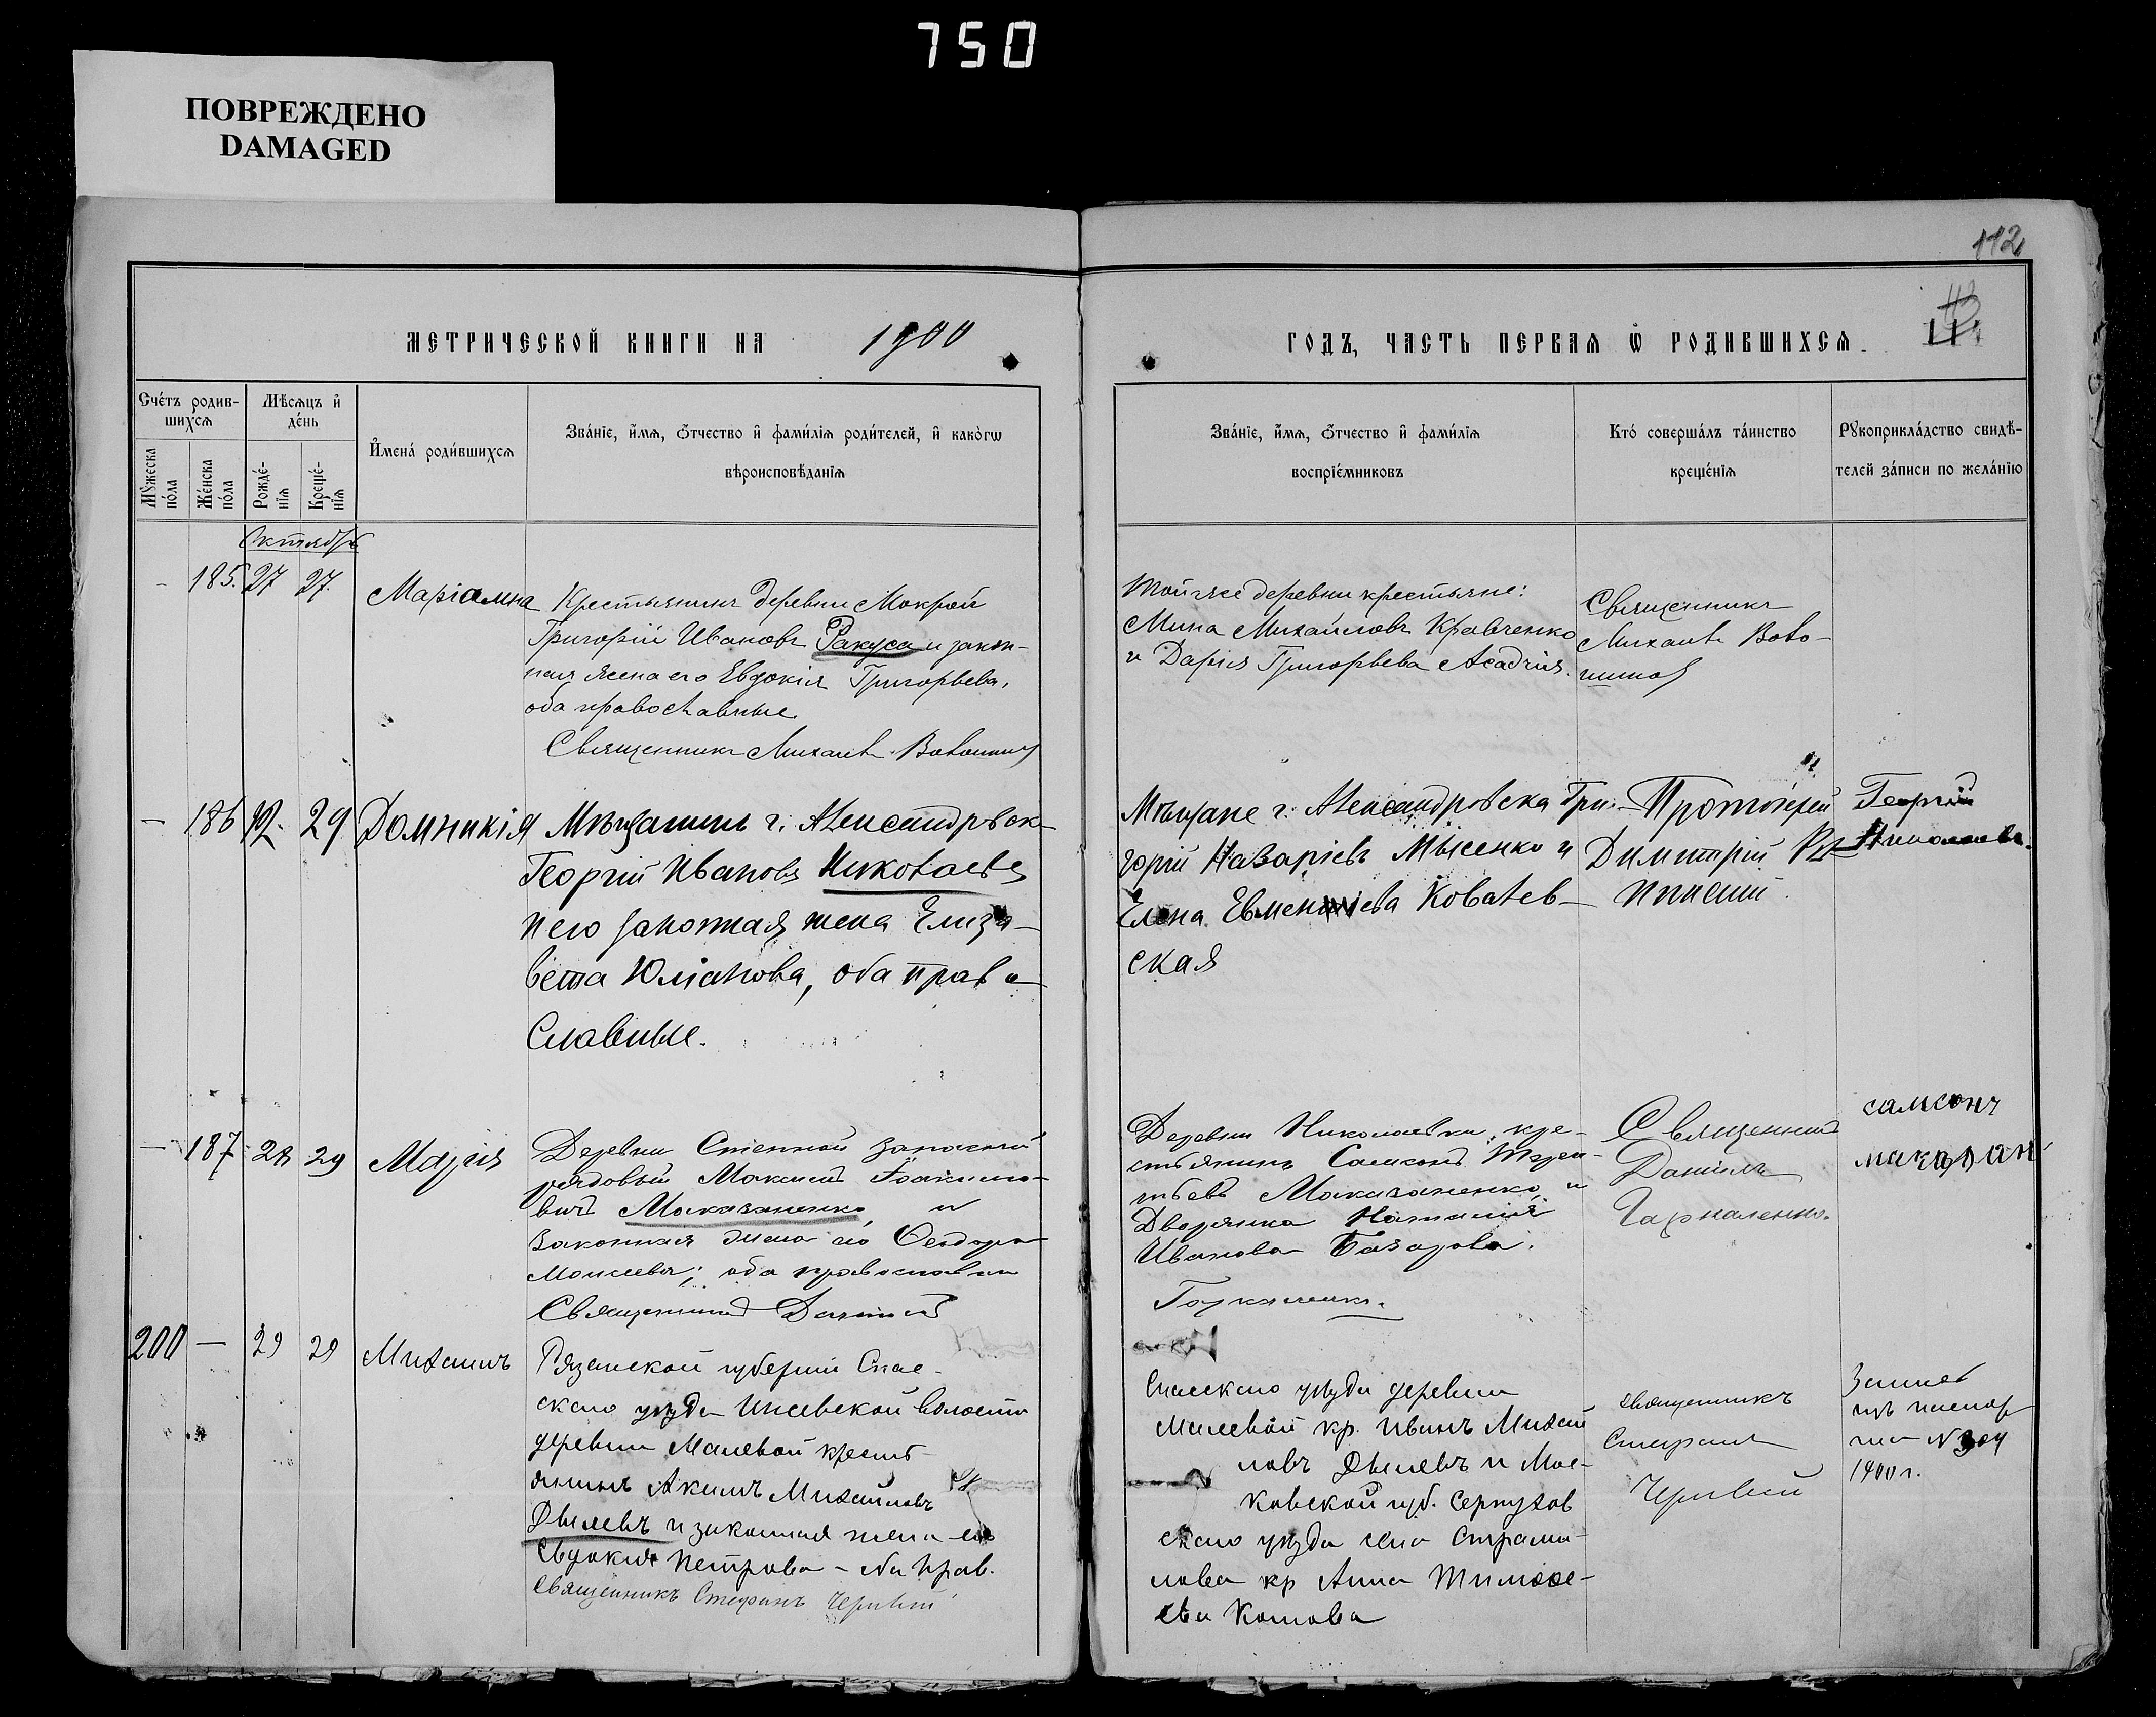 750
ПОВРЕЖДЕНО
DAMAGED
112
МЕТРИЧЕСКОЙ КНИГИ НА 1900
ГОДЪ, ЧАСТЬ ПЕРВАЯ Ѡ РОДИВШИХСЯ.
Счétъ родив-
шихся
Мѣсяцъ и
дéнь
Мꙋжеска
пóла
Жéнска
пóла
Рождé-
нія
Крещé-
нія
Именá роди́вшихся
Звáніе, и́мя, ѻ́тчество и фами́лія роди́телей, и како́гѡ
вѣроисповѣ́данія
Звáніе, и́мя, ѻ́тчество и фами́лія
воспріéмниковъ
Ктó совершáлъ тáинство
крещéнія
Рꙋкоприклáдство свидѣ́-
телей зáписи по желáнію
Октябрь
– 185. 27 27. Маріамна
Крестьянинъ деревни Мокрой
Григорій Ивановъ Ракуса и закон-
ная жена его Евдокія Григорьева,
оба православные
Священникъ Михаилъ
Той же деревни крестьяне:
Мина Михайловъ Кравченко
и Дарія Григорьева
Священникъ
Михаилъ
— 186 29 Домникія
Мѣщанинъ г. Александровск
Георгій Ивановъ Николаевъ
и его законная жена Елиза-
вета Юліанова, оба право-
славные.
Мѣщане г. Александровска Гри-
горій Назаріевъ Мысенко и
Елена Ковалев-
ская
Протоіерей
Димитрій
Георгій
Николаевъ.
— 187 28 29 Марія
Деревни Степной запасный
рядовый Максимъ Іоакимо-
вичъ Маказаненко и
законная жена его Феодора
Моисеева; оба православны
Священникъ Даніилъ
Деревни Николаевки, кре-
стьянинъ Самсонъ Терен-
тьевъ Маказаненко и
Дворянка Наталія
Иванова Базарова.
Священникъ
Даніилъ
самсонъ
200 — 29 29 Михаилъ
Рязанской губерніи Спас-
скаго уѣзда Ижевской волости
деревни Малевой крест
янинъ Акимъ Михайловъ
Дмилевъ и законная жена его
Евдокія Петрова – оба прав.
Священникъ Стефанъ
Спасскаго уѣзда деревни
Малевой кр. Иванъ Михай
ловъ Дмилевъ и Мос-
ковской губ. Серпухов
скаго уѣзда села
кр Анна Тимофе-
ева Котова
священникъ
Стефанъ
1900 г.